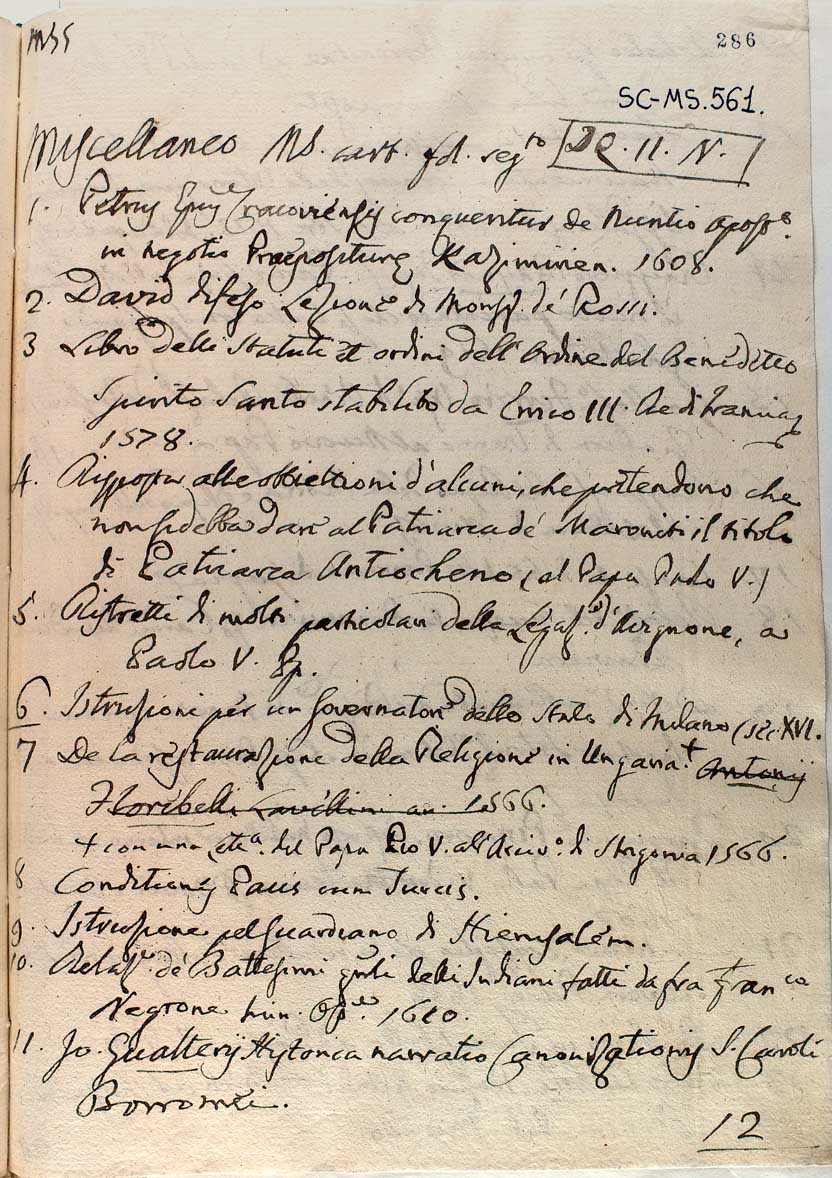 MSS
286
SC-MS.561.
Miscellaneo MS. cart. fol. seg.to DQ. II. N.
1. Petrus Epus Cracoviensis conqueritur de Nuntio apost.o
in negotio Præpositurę Kazimirien. 1608.
2. David difeso Lezione di Mons.r de' Rossi.
3 Libro delli Statuti et ordini dell'Ordine del Benedetto
Spirito Santo stabilito da Errico III. Re di Francia
1578.
4. Risposta alle obbiettioni d'alcuni, che pretendono che
non si debba dare al Patriarca de' Maroniti il titolo
di Patriarca Antiocheno (al Papa Paolo V.)
5. Ristretti di molti particolari della Legaz.e d'Avignone, a
Paolo V. Pp.
6. Istruzioni per un Governatore dello Stato di Milano (sec. XVI.
7 De la restaurazione della Religione in Ungaria. + Antonij
Floribelli Lavellini an. 1566.
+ con una Lett.a del Papa Pio V. all'Arciv.o di Strigonia 1566.
8 Conditiones Pacis cum Turcis.
9. Istruzione pel Guardiano di Hierusalem.
10. Relaz.e de' Battesimi delli Indiani fatti da fra Fran.co
Negrone 1610.
11. Jo. Gualterij Hystorica narratio Canonizationis S. Caroli
Borromei.
12